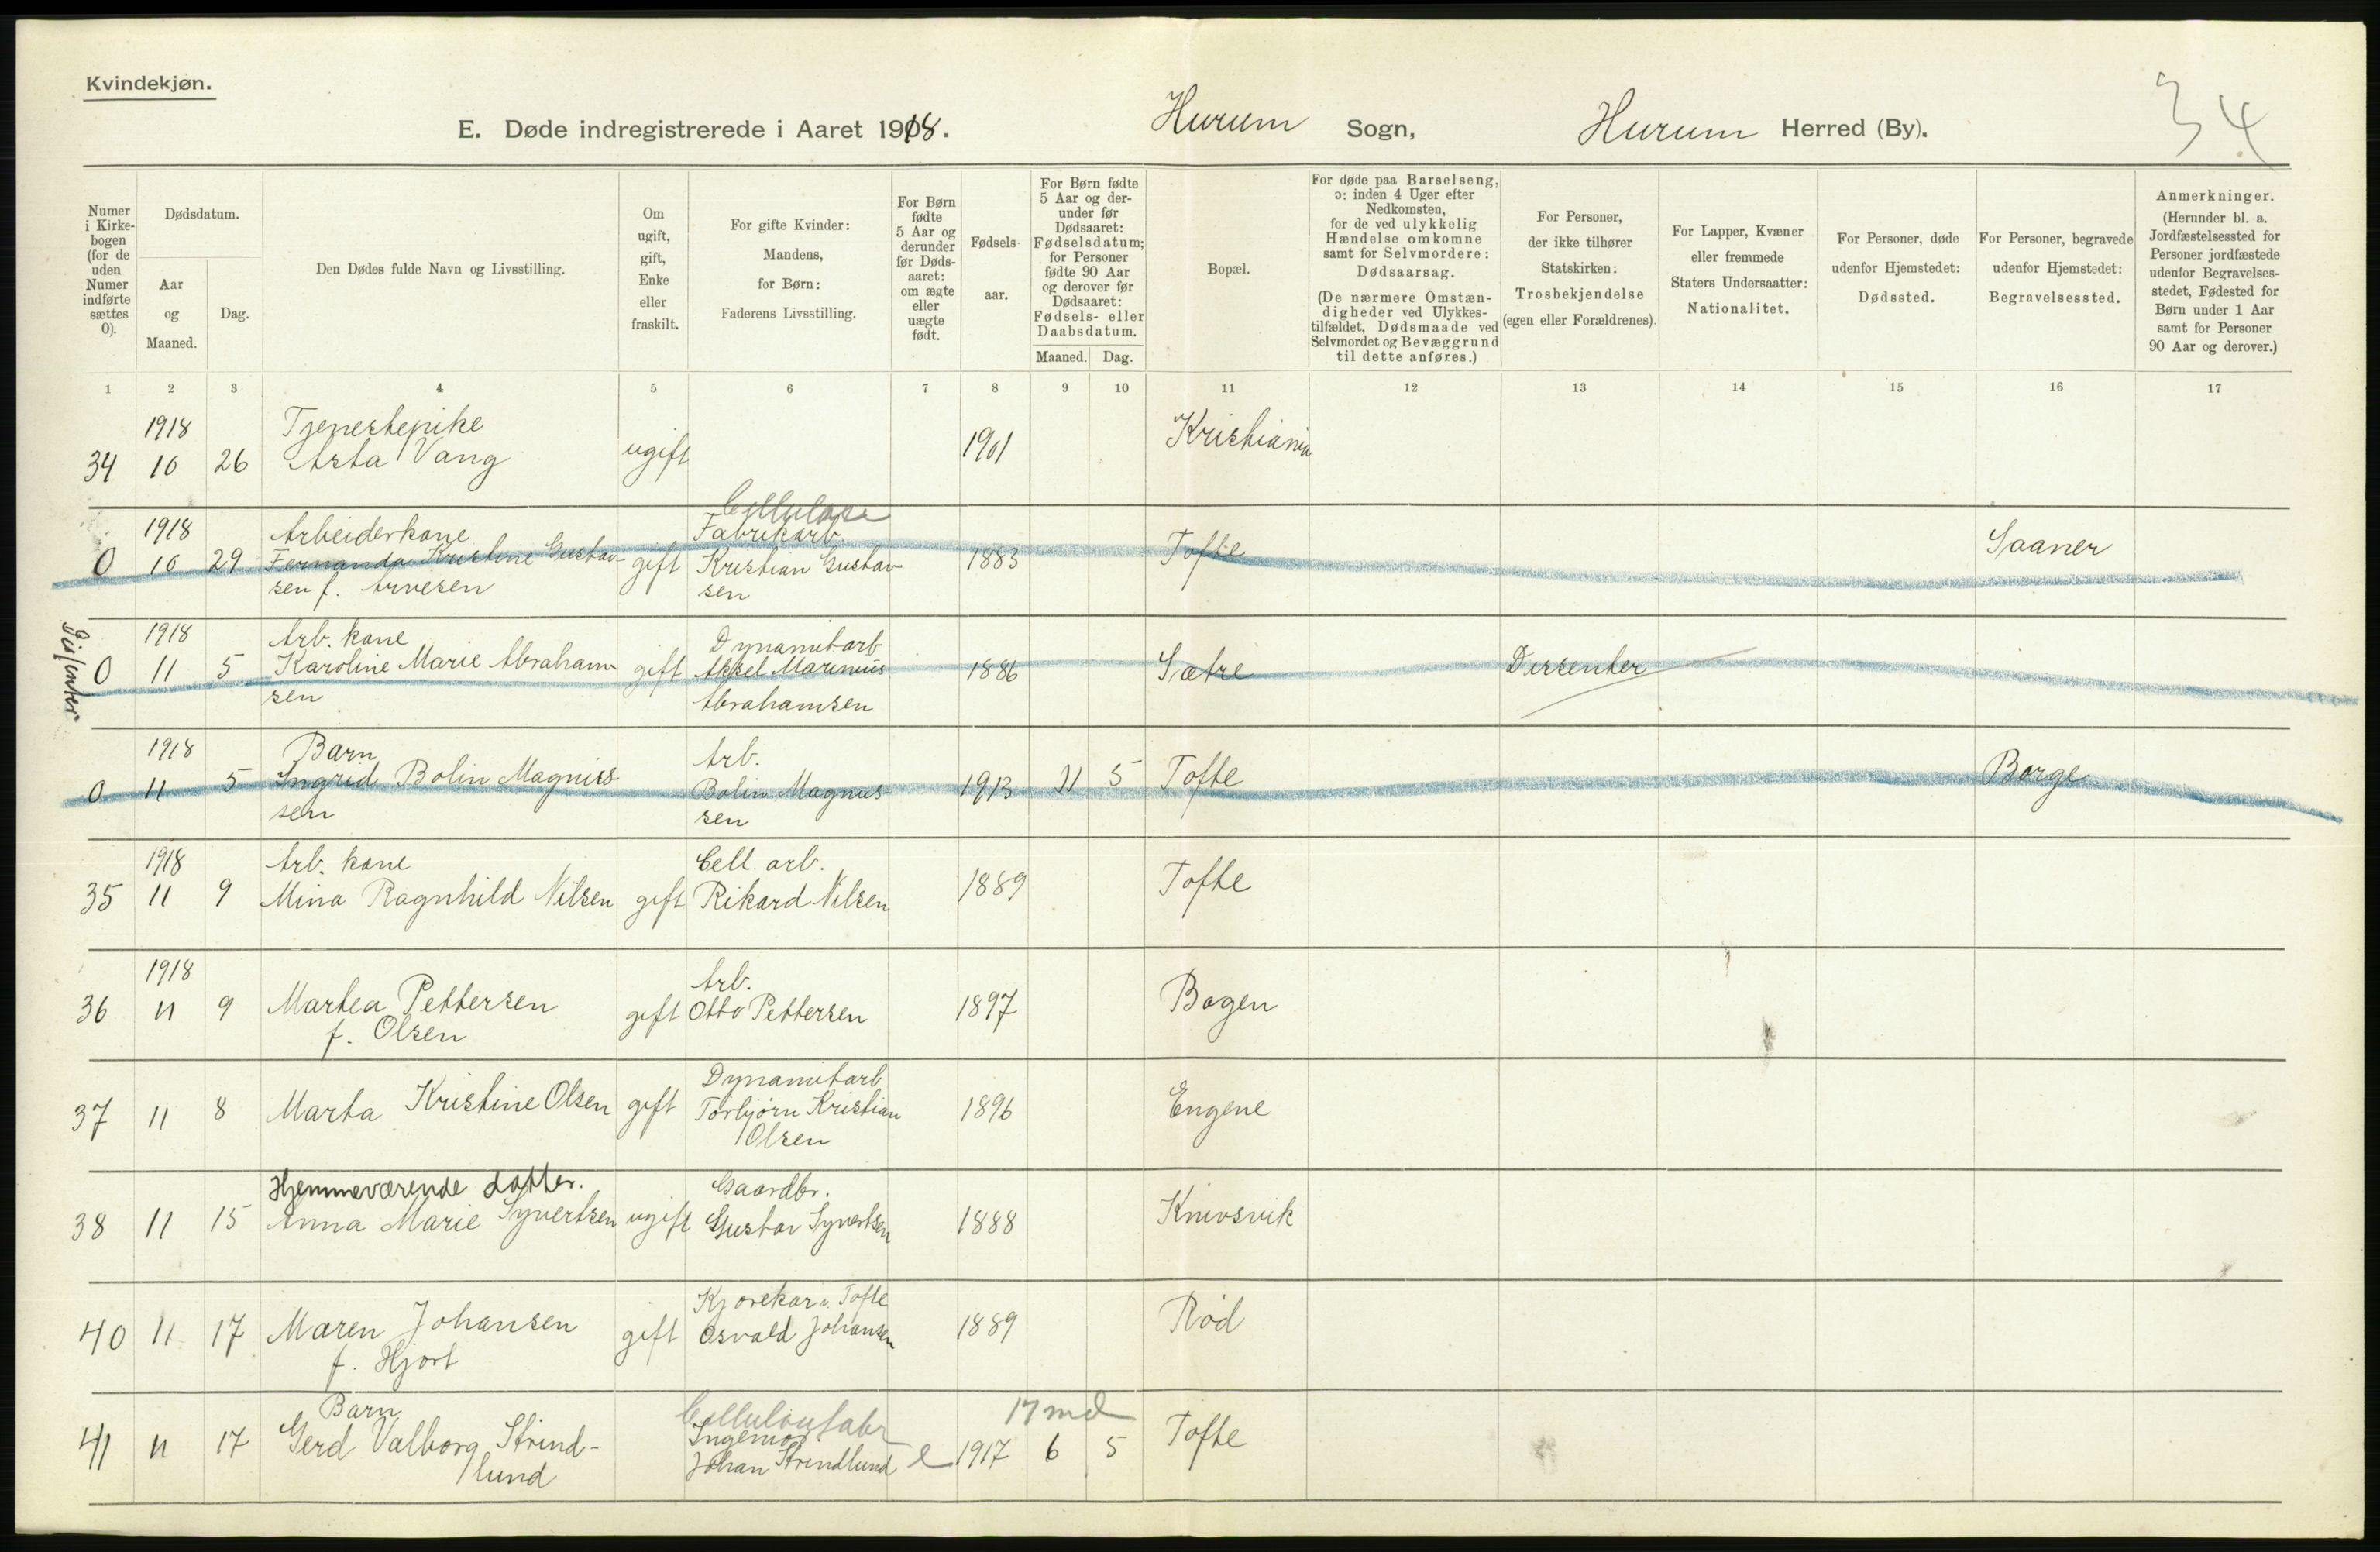 Kvindekjøn.
E. Døde indregistrerede i Aaret 1918. Hurum Sogn, Hurum Herred (By).
34
Numer i Kirke-bogen (for de uden Numer indførte sættes 0).
Dødsdatum.
Aar og Maaned.
Dag.
Den Dødes fulde Navn og Livsstilling.
Om ugift, gift, Enke eller fraskilt.
For gifte Kvinder: Mandens, for Børn: Faderens Livsstilling.
For Børn fødte 5 Aar og derunder før Døds-aaret: om ægte eller uægte født.
Fødsels-aar.
For Børn fødte 5 Aar og der-under før Dødsaaret: Fødselsdatum; for Personer fødte 90 Aar og derover før Dødsaaret: Fødsels- eller Daabsdatum.
Maaned. Dag.
Bopæl.
For døde paa Barselseng, ɔ: inden 4 Uger efter Nedkomsten, for de ved ulykkelig Hændelse omkomne samt for Selvmordere: Dødsaarsag. (De nærmere Omstæn-digheder ved Ulykkes-tilfældet, Dødsmaade ved Selvmordet og Bevæggrund til dette anføres.)
For Personer, der ikke tilhører Statskirken: Trosbekjendelse (egen eller Forældrenes).
For Lapper, Kvæner eller fremmede Staters Undersaatter: Nationalitet.
For Personer, døde udenfor Hjemstedet: Dødssted.
For Personer, begravede udenfor Hjemstedet: Begravelsessted.
Anmerkninger. (Herunder bl. a. Jordfæstelsessted for Personer jordfæstede udenfor Begravelses-stedet, Fødested for Børn under 1 Aar samt for Personer 90 Aar og derover.)
1 2 3 4 5 6 7 8 9 10 11 12 13 14 15 16 17
1918 Tjenestepike
34 10 26 Asta Vang ugift 1901 Kristiania
Cellulose
1918 Arbeiderkone Fabrikarb.
0 10 29 Fernanda Kristine Gustav- gift Kristian Gustav 1883 Tofte Saaner
sen f. Arvesen sen
1918 Arb. kone Dynamitarb
0 11 5 Karoline Marie Abraham gift Aksel Marinius 1886 Sætre Dissenter
sen Abrahamsen
1918 Barn Arb.
0 11 5 Ingrid Bolin Magnus Bolin Magnus- 1913 11 5 Tofte Borge
sen sen
1918 Arb. kone Cell. arb.
35 11 9 Mina Ragnhild Nilsen gift Rikard Nilsen 1889 Tofte
1918 Arb.
36 11 9 Martea Pettersen gift Otto Pettersen 1897 Bogen
f. Olsen
Dynamitarb
37 11 8 Marta Kristine Olsen gift Torbjørn Kristian 1896 Engene
Olsen
Hjemmeværende datter. Gaardbr.
38 11 15 Anna Marie Syvertsen ugift Gustav Syvertsen 1888 Knivsvik
Kjørekar v. Tofte
40 11 17 Maren Johansen gift Osvald Johansen 1889 Rød
f. Hjort
Barn Cellulosefabr 17 md
Ingeniør
41 11 17 Gerd Valborg Strind- Johan Strindlund e 1917 6 5 Tofte
lund